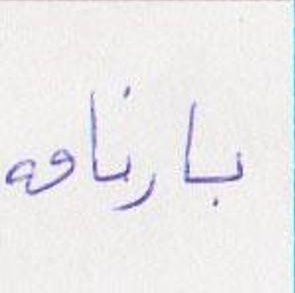 بارناوه